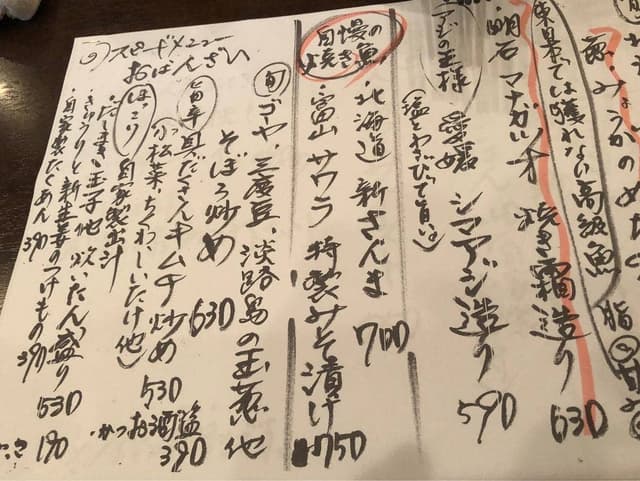 東京では獲れない高級魚
明石 マナガツオ 焼き霜造り 630
アジの王様
愛媛 シマアジ造り 590
(塩とわさびで旨い。)
自慢の焼き魚
北海道 新さんま 700
富山 サワラ 特製みそ漬け 750
スピードメニュー
おばんざい
旬 ゴーヤ、三度豆、淡路島の玉葱 他
そぼろ炒め 630
旨辛 具だくさんキムチ炒め 530
(小松菜、ちくわ、しいたけ 他)
かつお酒盗 390
ほっこり 自家製出汁
だしまき玉子 他 炊いたん盛り 530
きゅうりと新生姜のつけもの 390
自家製たくあん 390
190